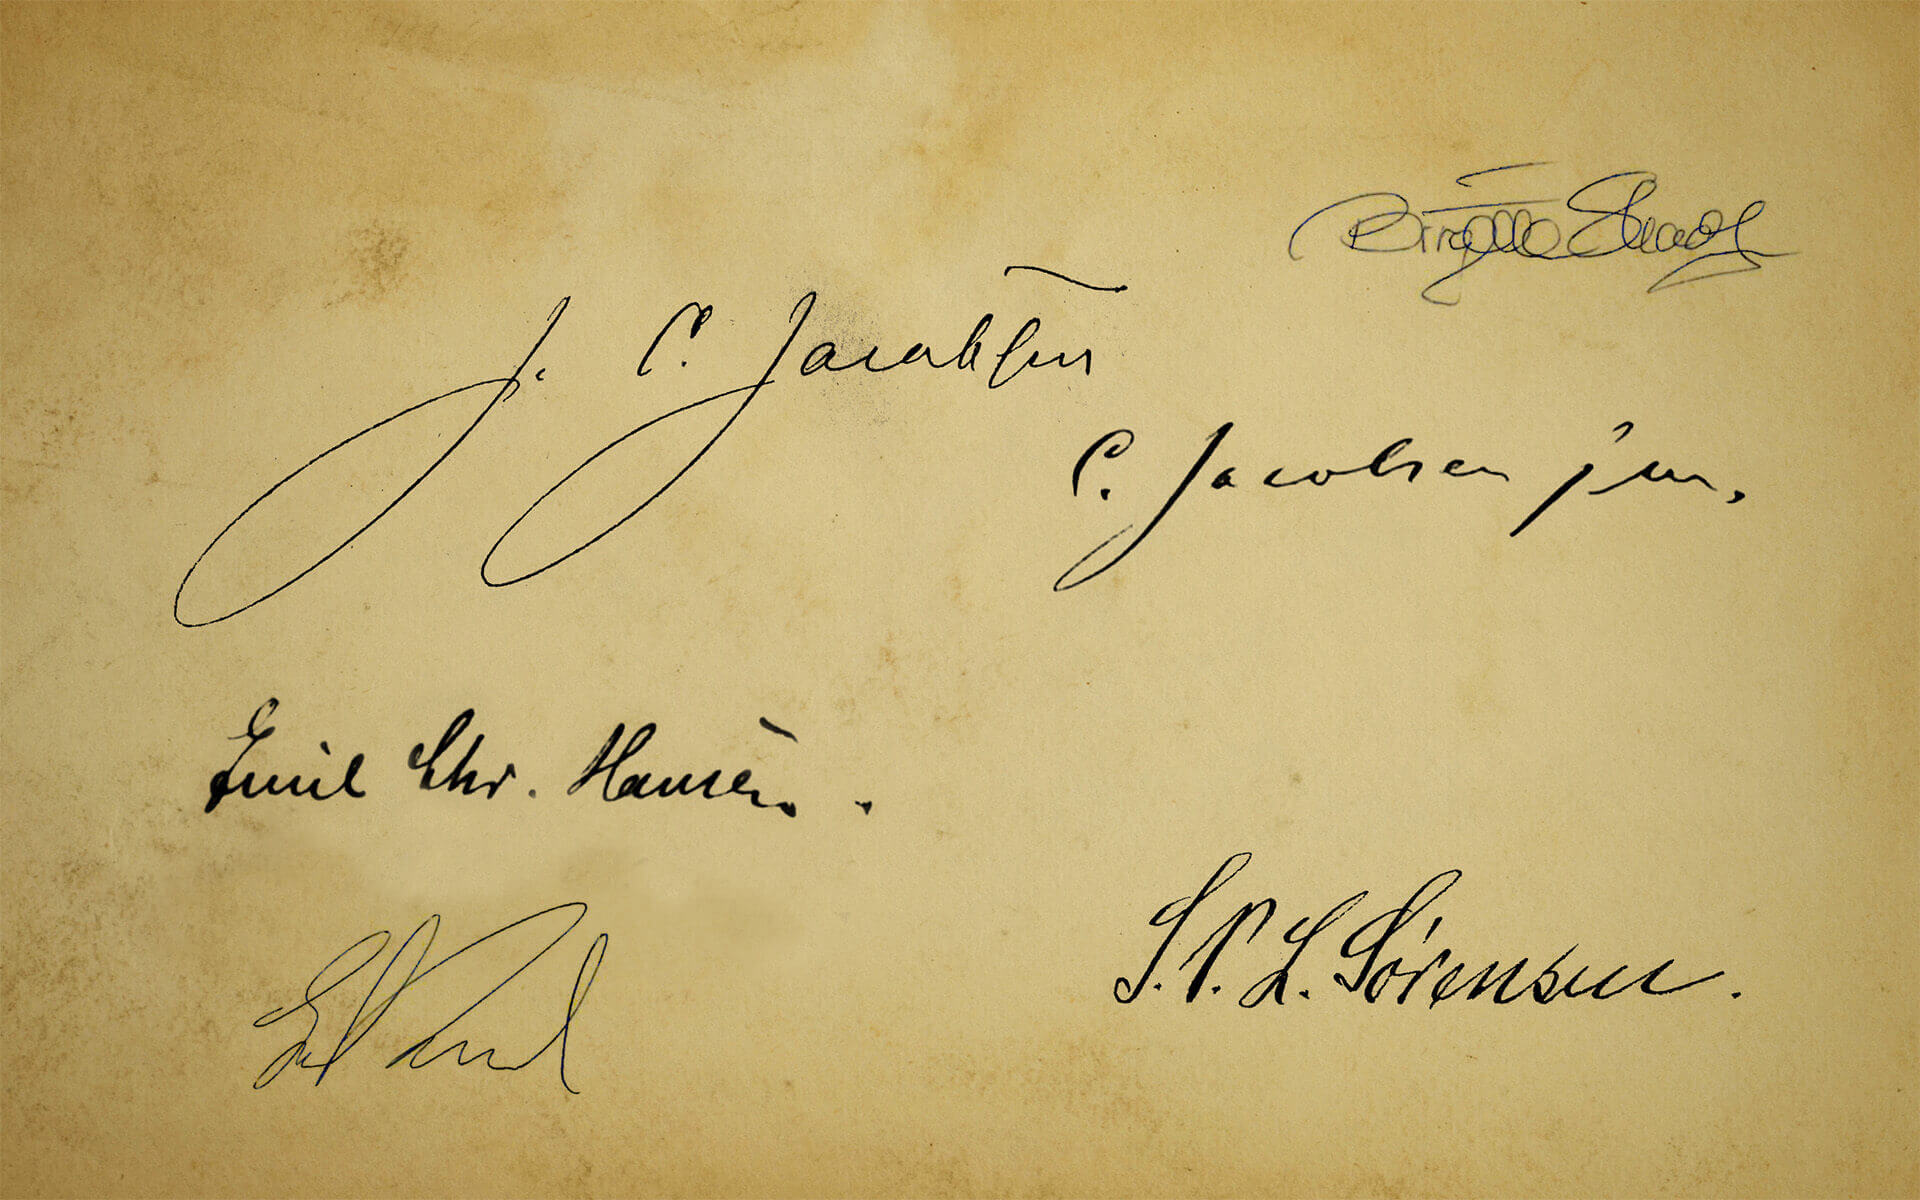 Birgitte Skadhauge
J. C. Jacobsen
C. Jacobsen jun.
Emil Chr. Hansen.
S. P. L. Sörensen.